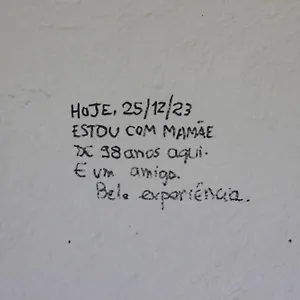 HOJE, 25/12/23
ESTOU COM MAMÃE
DE 98 anos aqui.
E um amigo.
Bela experiência.